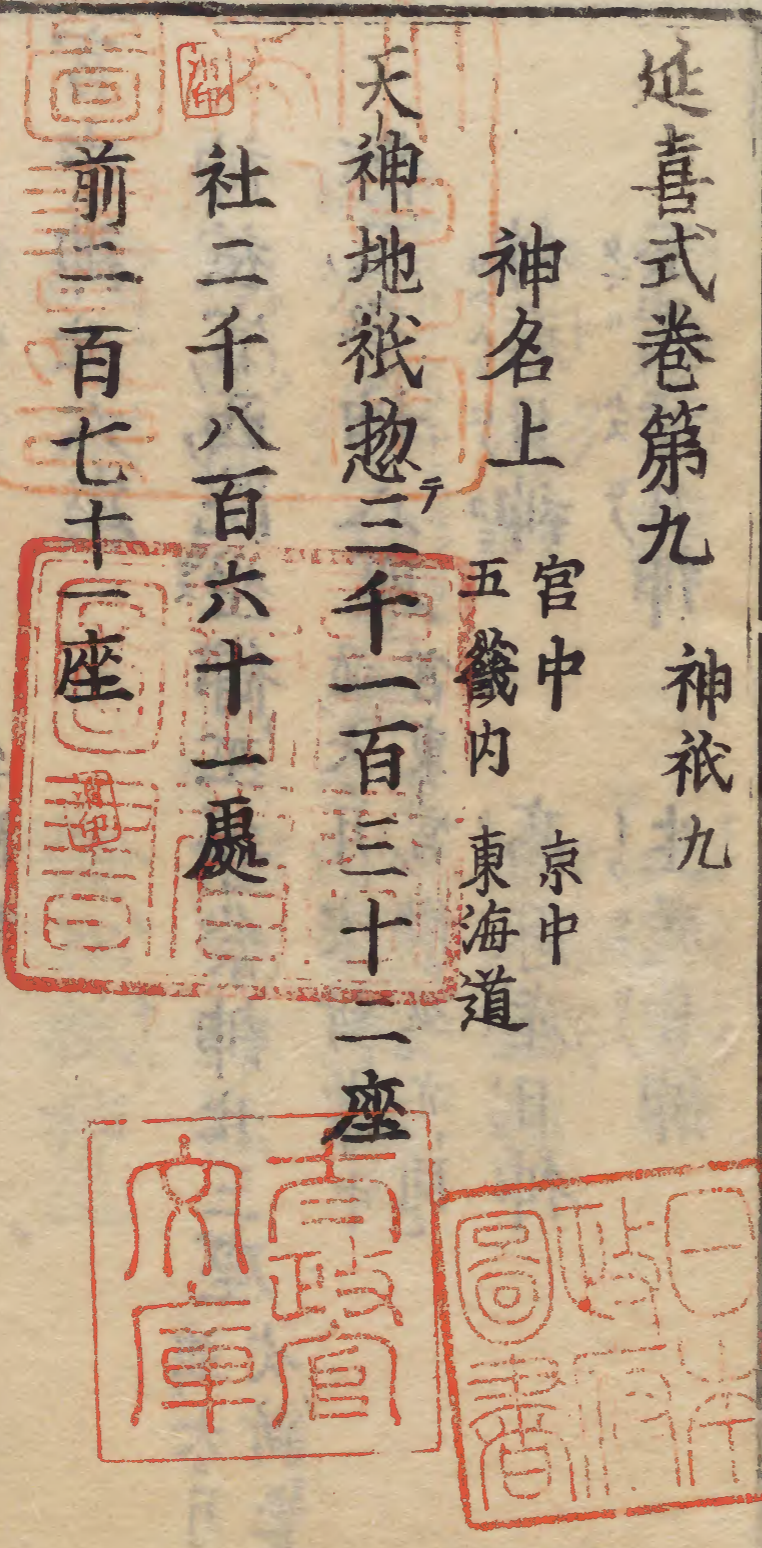 延喜式巻第九 神祇九
神名上
宮中 京中
五畿内 東海道
天神地祇惣テ三千一百三十二座
社二千八百六十一處
前二百七十一座
太政官文庫
日本政府圖書